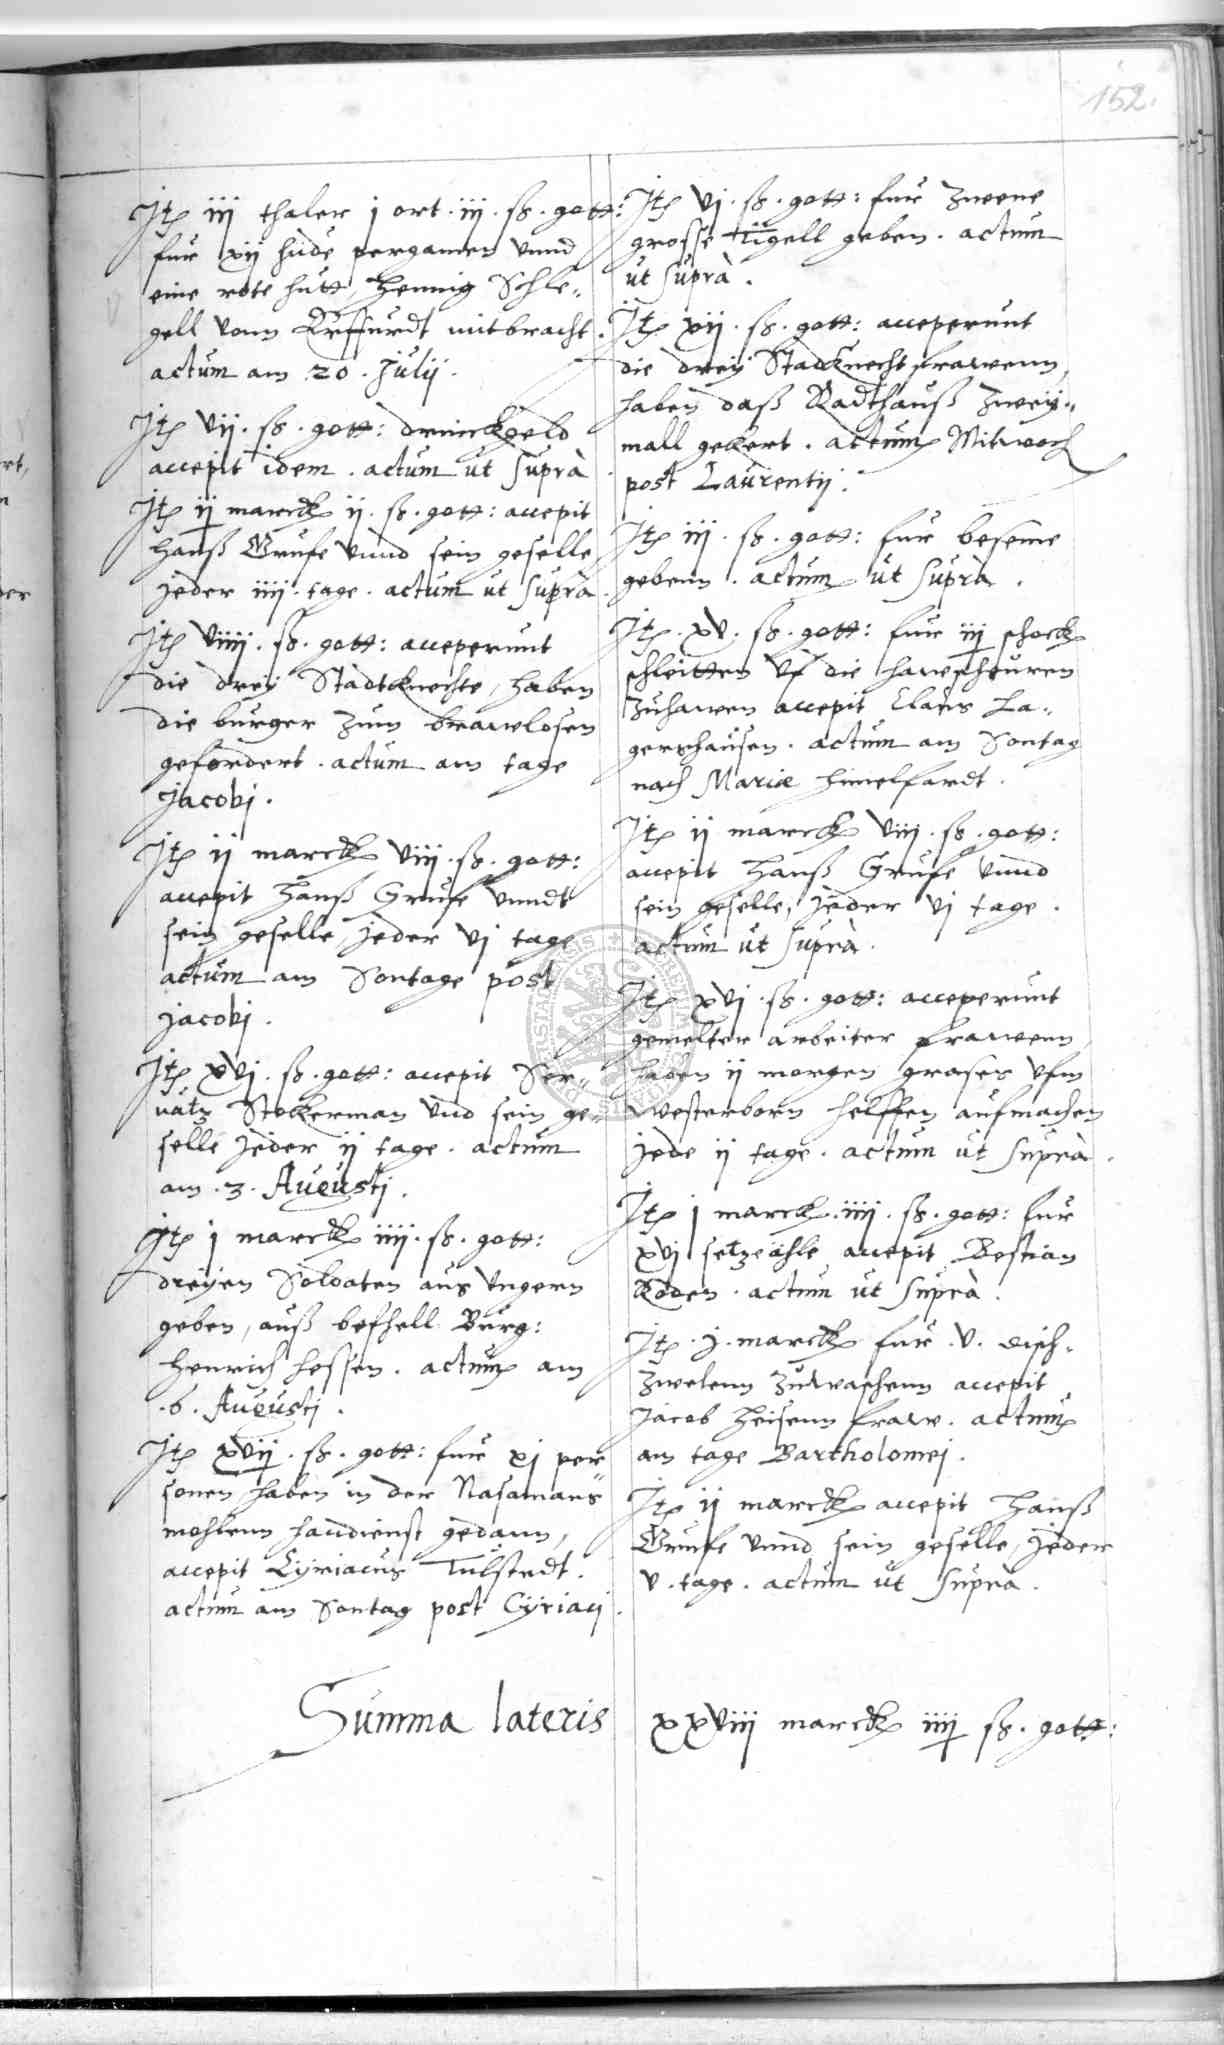 152.
Jtẽ iij thaler j ort. iij. ß. gott:
fur xij hüde pergamen vnnd
eine rote hutt, Hennig Schle„
gell vonn Erffurdt mitbracht.
actum am 20. Julij.
Jtẽ vij. ß. gott: drinckgeld
accepit idem. actum ut suprà
Jtẽ ij marck ij. ß. gott: accepit
Hanß Grufe vnnd sein geselle
jeder iiij. tage. actum ut suprà.
Jtẽ viiij. ß. gott: acceperunt
die dreÿ Stadtknechte, haben
die burger zum brawlosen
gefordert. actum am tage
Jacobj.
Jtẽ ij marck viij. ß. gott:
accepit Hanß Grufe vnndt
sein geselle, jeder vj tage
actum am Sontage post
Jacobj.
Jtẽ xvj. ß. gott: accepit Ser„
uatz Stockerman vnd sein ge„
selle jeder ij tage. actum
am .3. Augustj.
Jtẽ j marck iiij. ß. gott:
dreÿen Soldaten aus Vngern
geben, auß befhell Burg:
Henrich Hessen. actum am
.6. Augustj.
Jtẽ xvij. ß. gott: fur xj per„
sonen haben in der Nasamans
mohlenn handienst gedann,
accepit Cÿriacus Tulstedt.
actum am Sontag post Cÿriacj.
Jtẽ vj. ß. gott: fur zwene
grosse Tigell geben. actum
ut suprà.
Jtẽ xij. ß. gott: acceperunt
die dreÿ Stadknecht frawenn,
haben daß Radthauß zweÿ„
mall gekert. actum Mitwoch
post Laurentij.
Jtẽ iij. ß. gott: fur beseme
gebenn. actum ut suprà.
Jtẽ. xv. ß. gott: fur iij schock
schleitten vf die
zuhawen accepit Claus La„
gershausen. actum am Sontag
nach Mariæ himelfardt.
Jtẽ ij marck viij. ß. gott:
accepit Hanß Grufe vnnd
sein geselle, jeder vj tage.
actum ut suprà.
Jtẽ xvj. ß. gott: acceperunt
gemelter arbeiter frawenn,
haben ij morgen grases vfm
Westerborn helffen aufmachen
jede ij tage. actum ut suprà.
Jtẽ j marck. iiij. ß. gott: fur
xvj setzeähle accepit Bestian
Roden. actum ut suprà.
Jtẽ. j. marck fur .v. disch„
zwelenn zuwaschenn accepit
Jacob Heisenn fraw. actum
am tage Bartholomej.
Jtẽ ij marck accepit Hanß
Grufe vnnd sein geselle, jeder
v. tage. actum ut suprà.
Summa lateris xxviij marck iiij ß. gott: